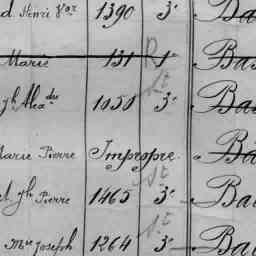 d. Henri Vor 1390 3e Ba
Marie 131 R 1e Bas
jh Alex dre 1050 St 3e Bau
Marie Pierre Impropre Ba
el jh Pierre 1465 St 3e Bau
Mie Joseph 1264 St 3e Bau